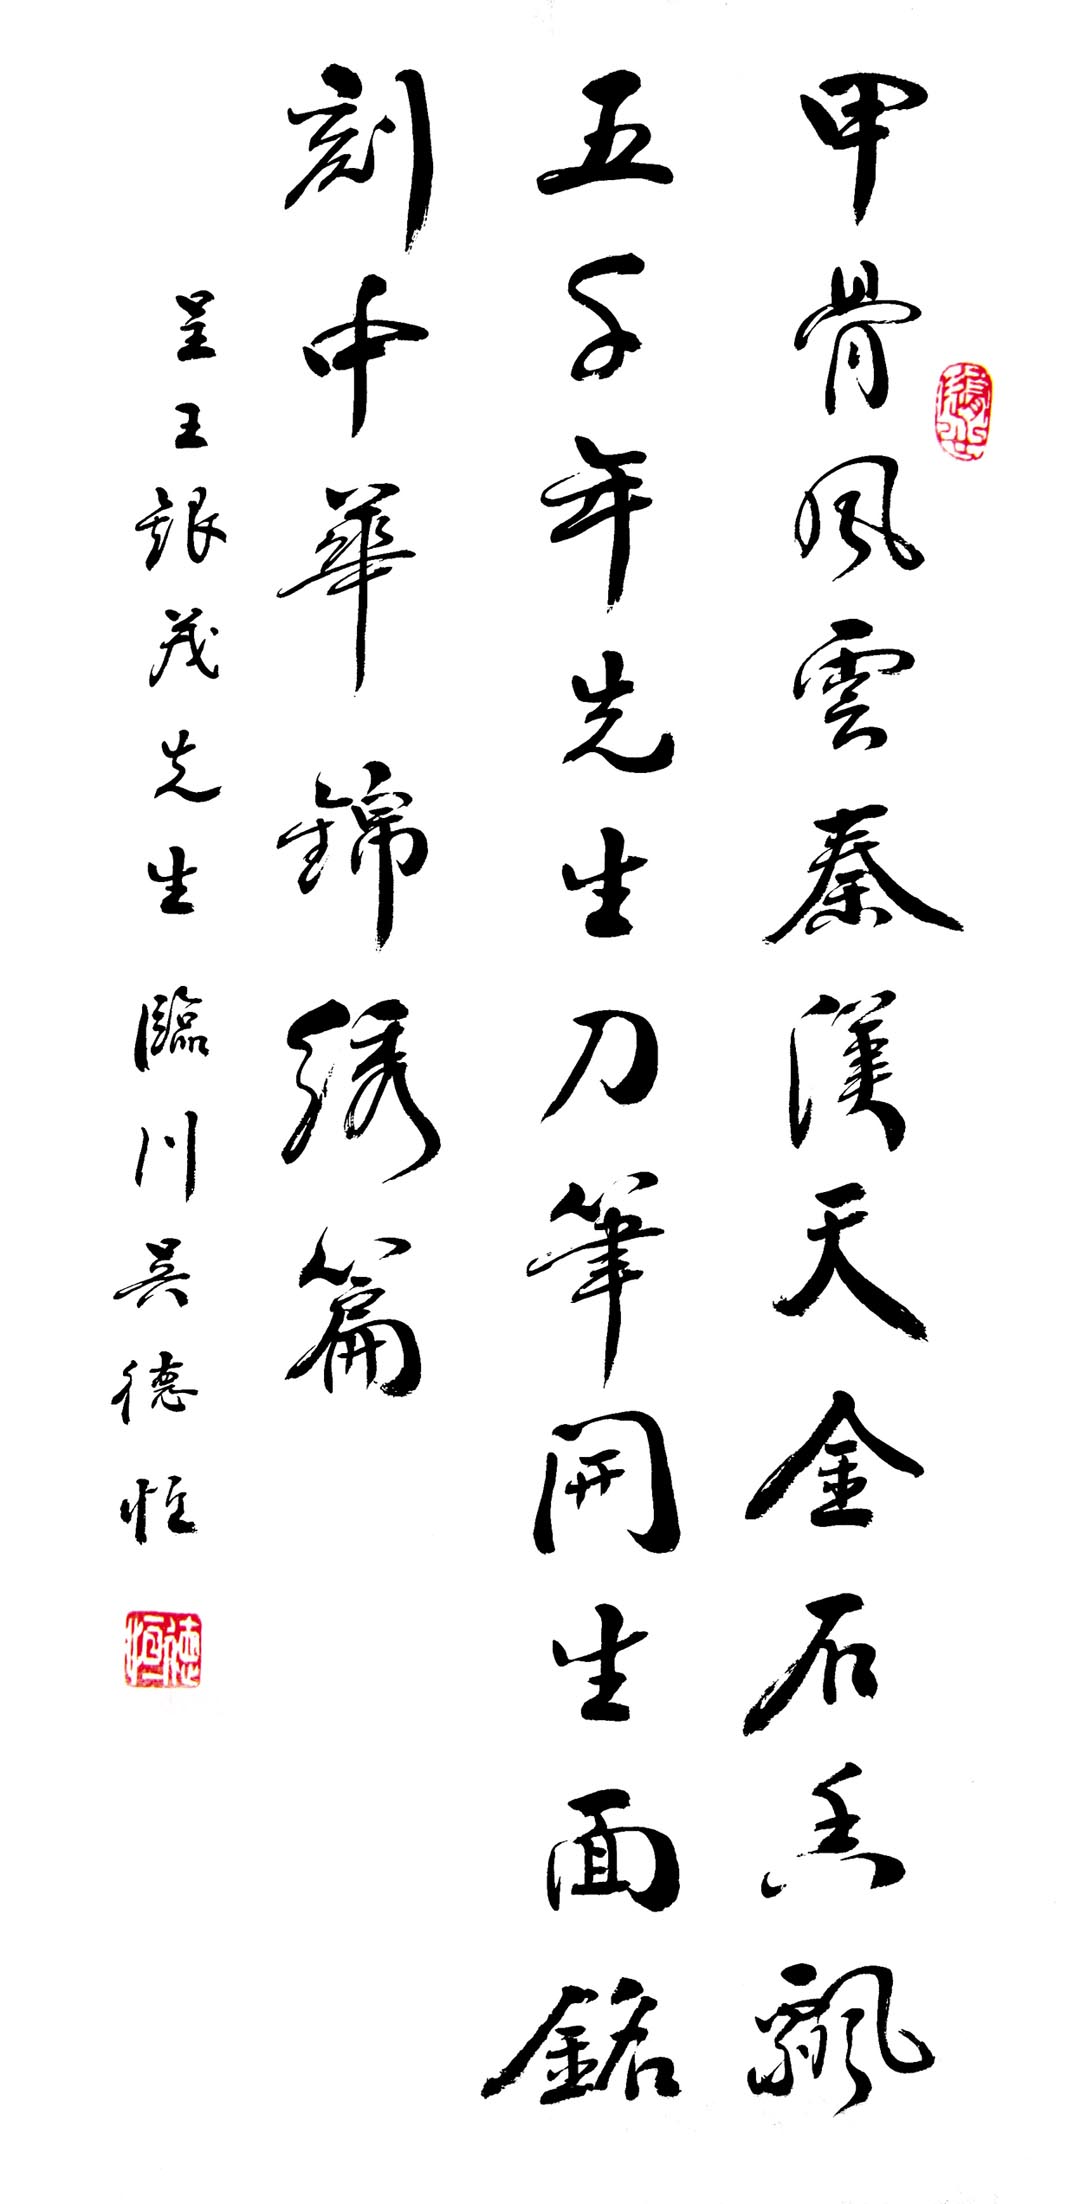 甲骨风雲秦漢天金石香飘
五千年先生刀筆開生面銘
刻中華錦绣篇
呈王銀茂先生臨川吴德恒
德恒